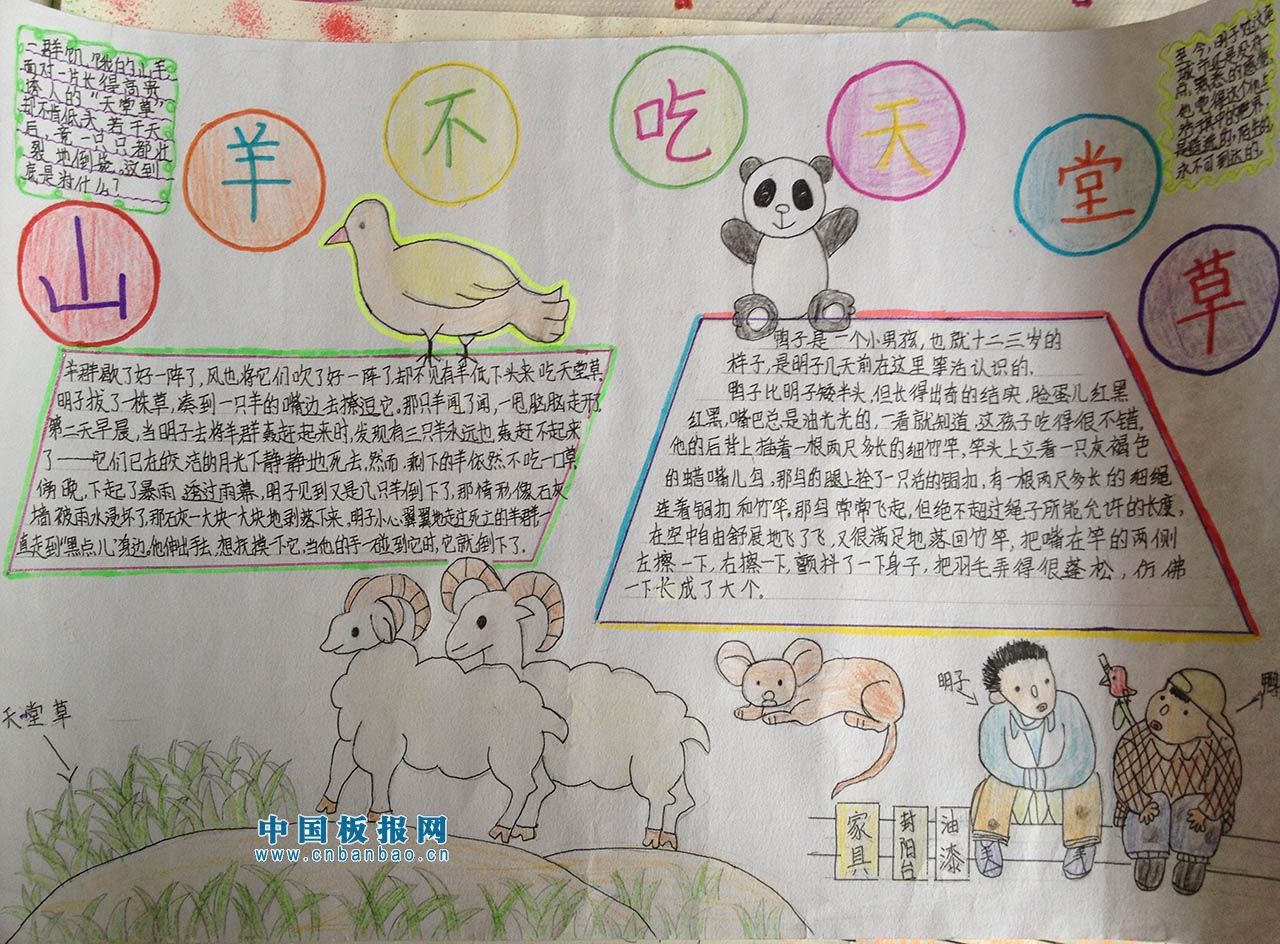 山羊不吃天堂草
一群饥饿的山羊,
面对一片长得高贵
诱人的“天堂草”
却不肯低头,若干天
后,竟一只只都壮
烈地倒毙。这到
底是为什么?
至今,明子对这座
城市还是没有一
点熟悉的感觉。
他觉得这个他上
的,陌生的,
永不可到达的。
羊群歇了好一阵了,风也将它们吹了好一阵了却不见有羊低下头来吃天堂草.
明子拔了一株草,凑到一只羊的嘴边去撩逗它。那只羊闻了闻,一甩脑脑走开了
第二天早晨,当明子去将羊群轰赶起来时,发现有三只羊永远也轰赶不起来
了——它们已在皎洁的月光下静静地死去,然而,剩下的羊依然不吃一口草
傍晚,下起了暴雨 透过雨幕,明子见到又是几只羊倒下了,那情形像石灰
墙被雨水浸坏了,那石灰一大块一大块地剥落下来,明子小心翼翼地走过死立的羊群,一
直走到“黑点儿”身边。他伸出手去,想抚摸一下它,当他的手一碰到它时,它就倒下了.
鸭子是一个小男孩,也就十二三岁的
样子,是明子几天前在这里等活认识的.
鸭子比明子矮半头,但长得出奇的结实,脸蛋儿红黑
红黑,嘴巴总是油光光的,一看就知道,这孩子吃得很不错,
他的后背上插着一根两尺多长的细竹竿,竿头上立着一只灰褐色
的蜡嘴儿鸟,那鸟的腿上拴了一只活的铜扣,有一根两尺多长的细绳
连着铜扣和竹竿。那鸟常常飞起,但绝不超过绳子所能允许的长度,
在空中自由舒展地飞了飞,又很满足地落回竹竿,把嘴在竿的两侧
左擦一下,右擦一下,颤抖了一下身子,把羽毛弄得很蓬松,仿佛
一下长成了大个。
天堂草
明子
鸭
家具
封阳台
油漆
中国板报网
www.cnbanbao.cn